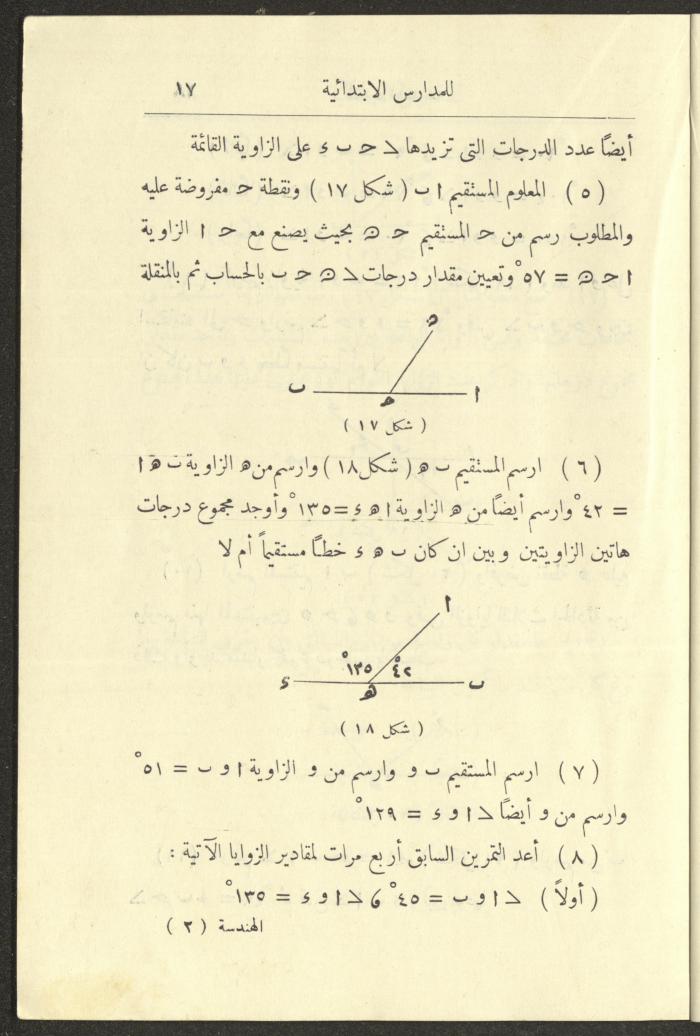 للمدارس الابتدائية ١٧
أيضاً عدد الدرجات التى تزيدها ∠ حـ ب ء على الزاوية القائمة
( ٥ ) المعلوم المستقيم ا ب ( شكل ١٧ ) ونقطة حـ مفروضة عليه
والمطلوب رسم من حـ المستقيم حـ ه بحيث يصنع مع حـ ا الزاوية
ا حـ ه = ٥٧° وتعيين مقدار درجات ∠ ه حـ ب بالحساب ثم بالمنقلة
ه
ب ا
( شكل ١٧ )
( ٦ ) ارسم المستقيم ب ه ( شكل ١٨ ) وارسم من ه الزاوية ب ه ا
= ٤٢° وارسم أيضاً من ه الزاوية ا ه ء = ١٣٥° وأوجد مجموع درجات
هاتين الزاويتين وبين ان كان ب ه ء خطاً مستقيماً أم لا
ا
١٣٥° ٤٢°
ء ه ب
( شكل ١٨ )
( ٧ ) ارسم المستقيم ب و وارسم من و الزاوية ا و ب = ٥١°
وارسم من و أيضاً ∠ ا و ء = ١٢٩°
( ٨ ) أعد التمرين السابق أربع مرات لمقادير الزوايا الآتية :
( أولاً ) ∠ ا و ب = ٤٥° ٯ ∠ ا و ء = ١٣٥°
الهندسة ( ٢ )